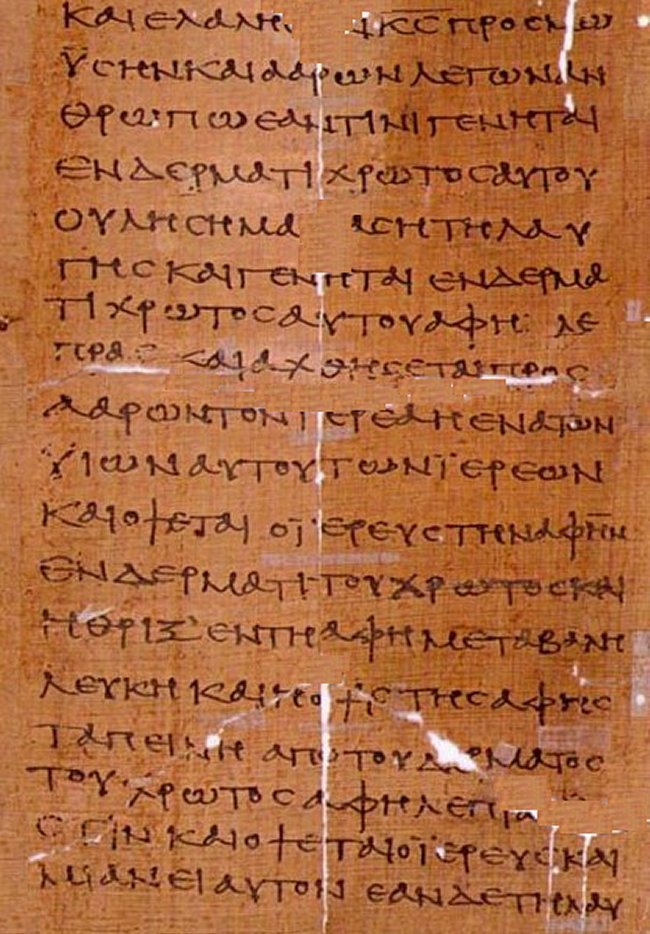 ΚΑΙΕΛΑΛΗ Κ̅Ϲ̅ΠΡΟϹΜΩ
ΫϹΗΝΚΑΙΑΑΡΩΝΛΕΓΩΝΑΝ
ΘΡΩΠΩΕΑΝΤΙΝΙΓΕΝΗΤΑΙ
ΕΝΔΕΡΜΑΤΙΧΡΩΤΟϹΑΥΤΟΥ
ΟΥΛΗϹΗΜΑ ΑϹΗΤΗΛΑΥ
ΓΗϹΚΑΙΓΕΝΗΤΑΙΕΝΔΕΡΜΑ
ΤΙΧΡΩΤΟϹΑΥΤΟΥΑΦΗ ΛΕ
ΠΡΑϹ ΚΑΙΑΧΘΗϹΕΤΑΙΠΡΟϹ
ΑΑΡΩΝΤΟΝΙΕΡΕΑΗΕΝΑΤΩΝ
ΫΙΩΝΑΥΤΟΥΤΩΝΪΕΡΕΩΝ
ΚΑΙΟΨΕΤΑΙΟΪΕΡΕΥϹΤΗΝΑΦΗΝ
ΕΝΔΕΡΜΑΤΙΤΟΥΧΡΩΤΟϹΚΑΙ
ΗΘΡΙΞΕΝΤΗΑΦΗΜΕΤΑΒΑΛΗ
ΛΕΥΚΗΚΑΙΗΟΨΙϹΤΗϹΑΦΗϹ
ΤΑΠΕΙΝΗΑΠΟΤΟΥΔΕΡΜΑΤΟϹ
ΤΟΥΧΡΩΤΟϹΑΦΗΛΕΠΡΑ
ϹΤΙΝΚΑΙΟΨΕΤΑΙΟΪΕΡΕΥϹΚΑΙ
ΜΙΑΝΕΙΑΥΤΟΝΕΑΝΔΕΤΗΛΑΥ